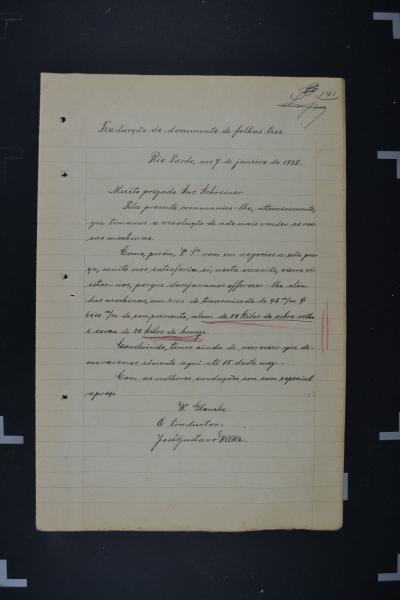 141
Traducção do documento de folhas tres.
Rio Pardo, aos 7 de janeiro de 1935.
Muito prezado Snr. Schreiner.
Pela presente communico-lhe, attenciosamente,
que tomamos a resolução de não mais vender as nos-
sas machinas.
Como, porém, V. Sa. vem em negocios a esta pra-
ça, muito nos satisfaria si, nesta occasião, viesse vi-
sitar-nos, porque desejavamos offerecer-lhe alem
das machinas, um eixo de transmissão de 45 m/m
6000 m/m de comprimento, alem de 80 kilos de cobre velho
e cerca de 30 kilos de bronze.
Concluindo, temos ainda de accrescer que de-
moraremos sómente aqui até 15 deste mez.-
Com as melhores saudações sou com especial
apreço
W.
O traductor:
José Gustavo Wilke.